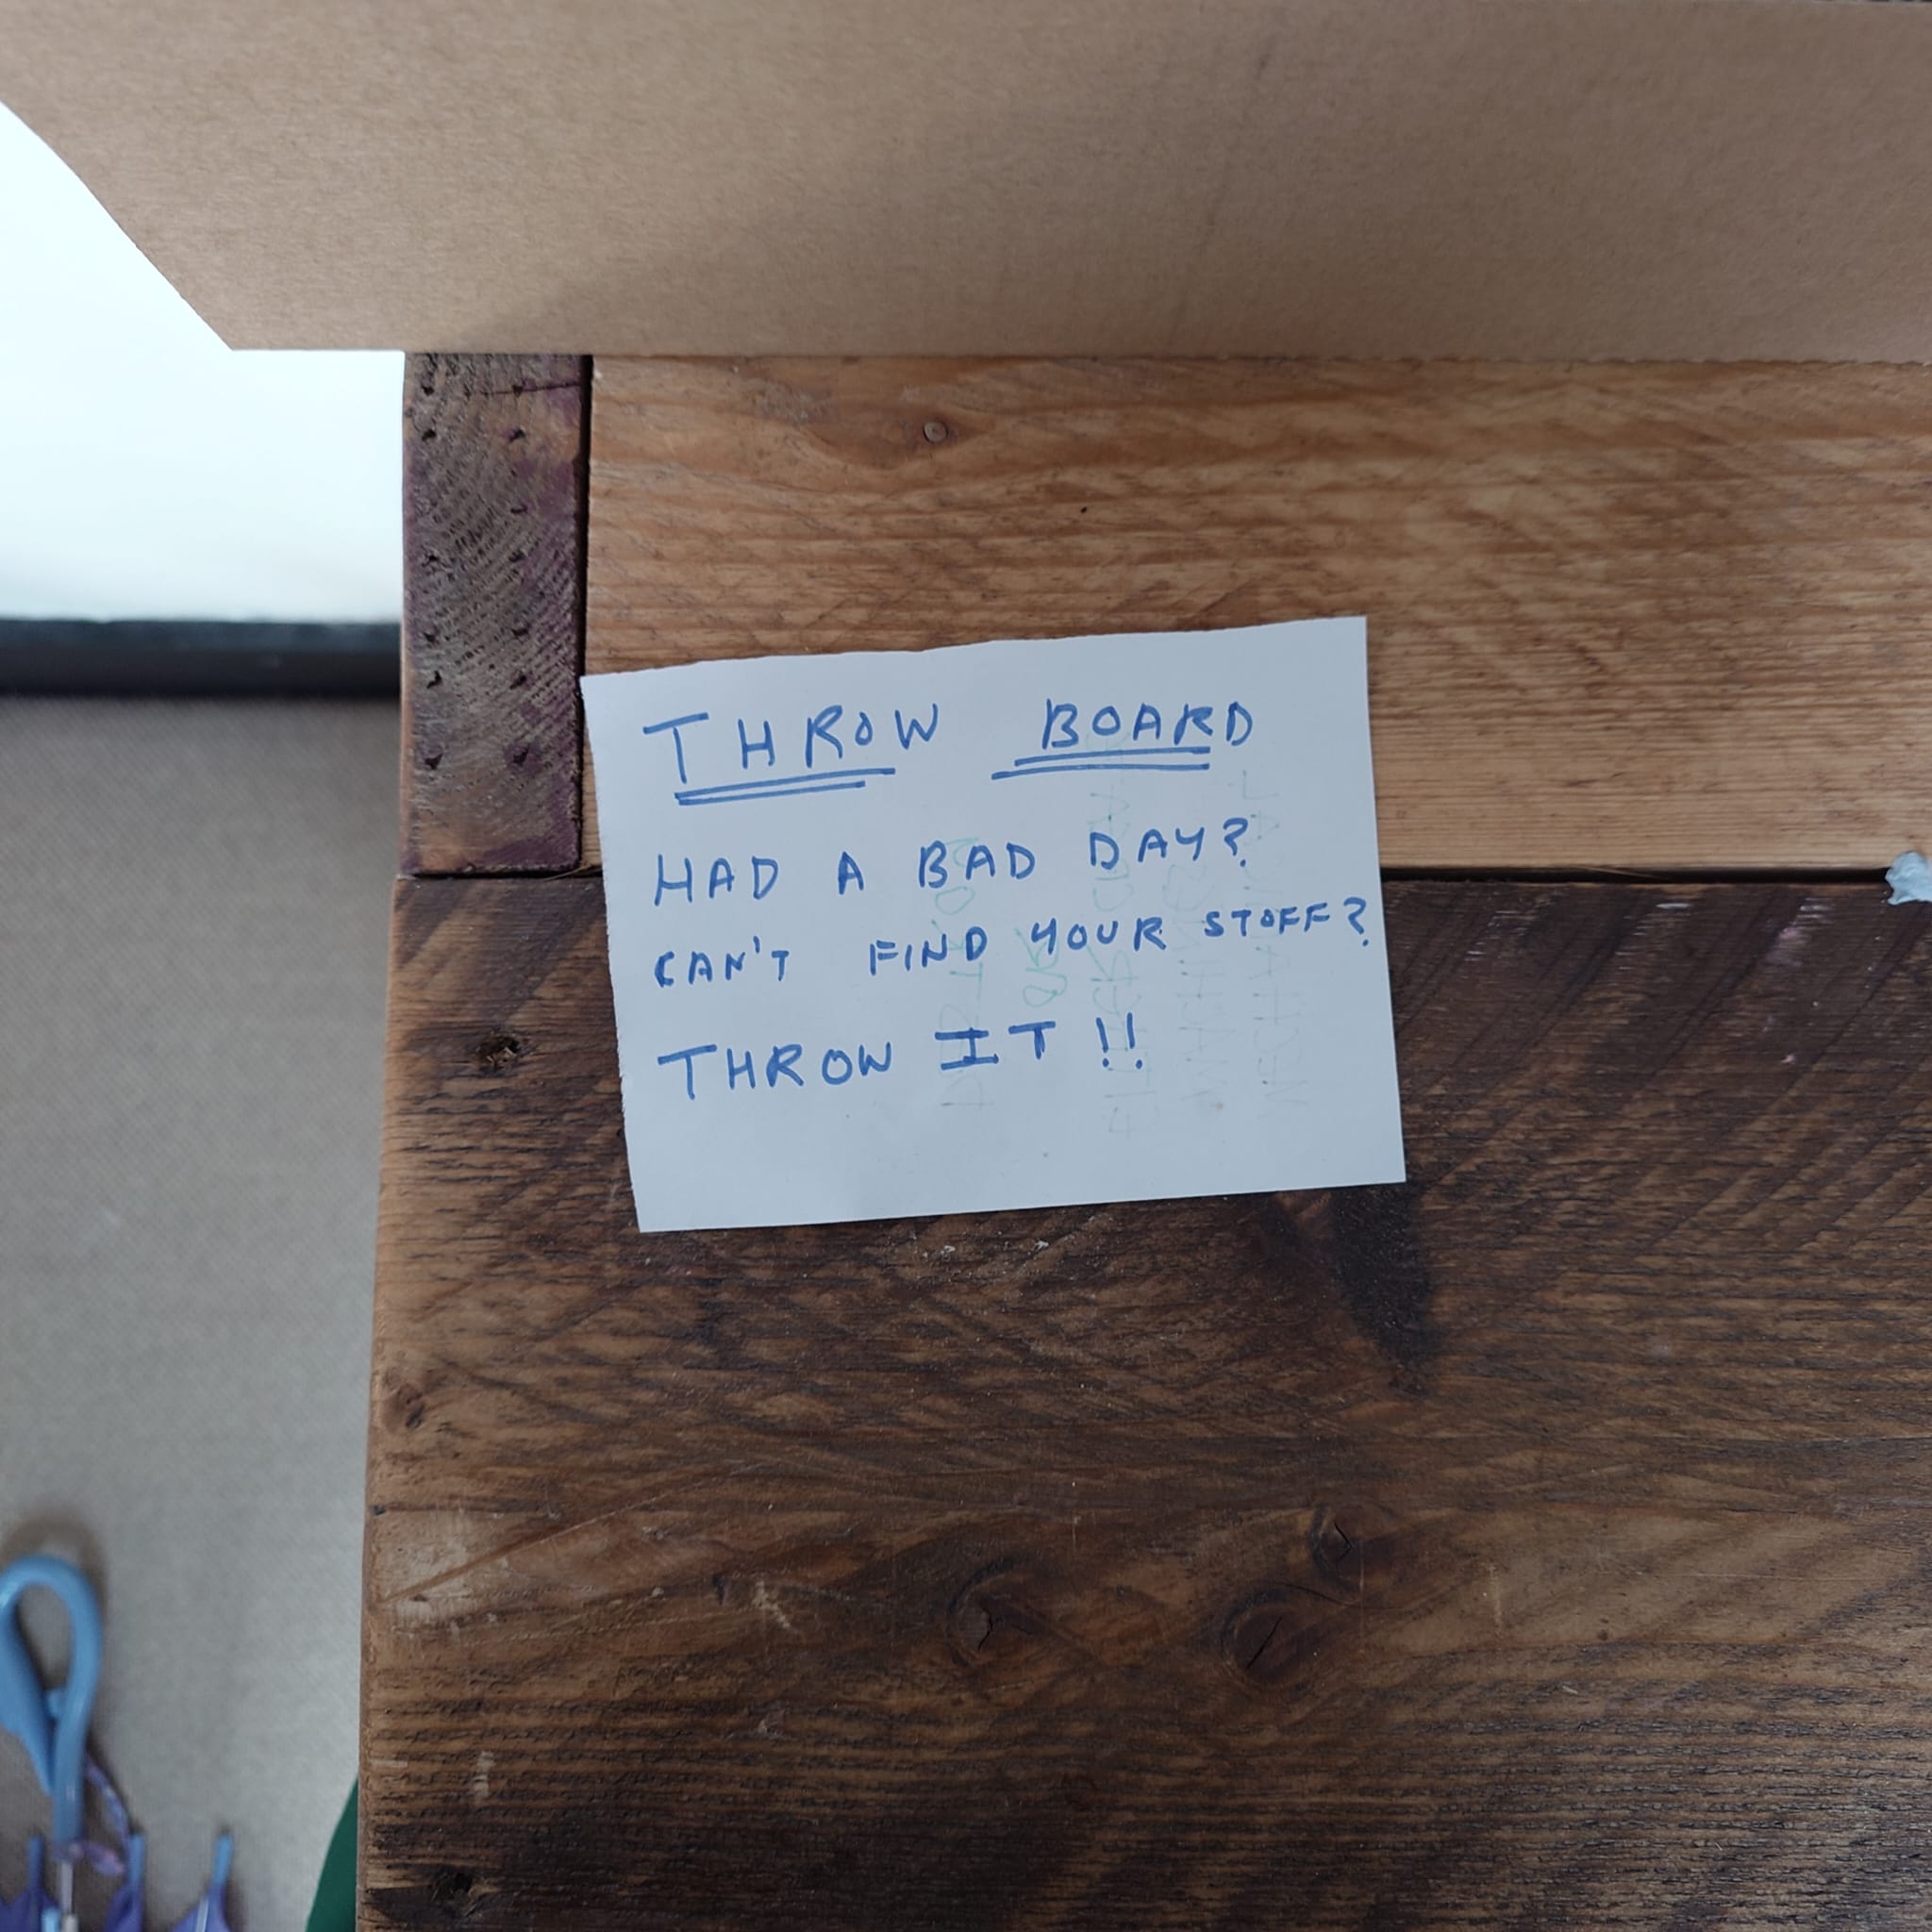 THROW BOARD
HAD A BAD DAY?
CAN'T FIND YOUR STOFF?
THROW IT!!